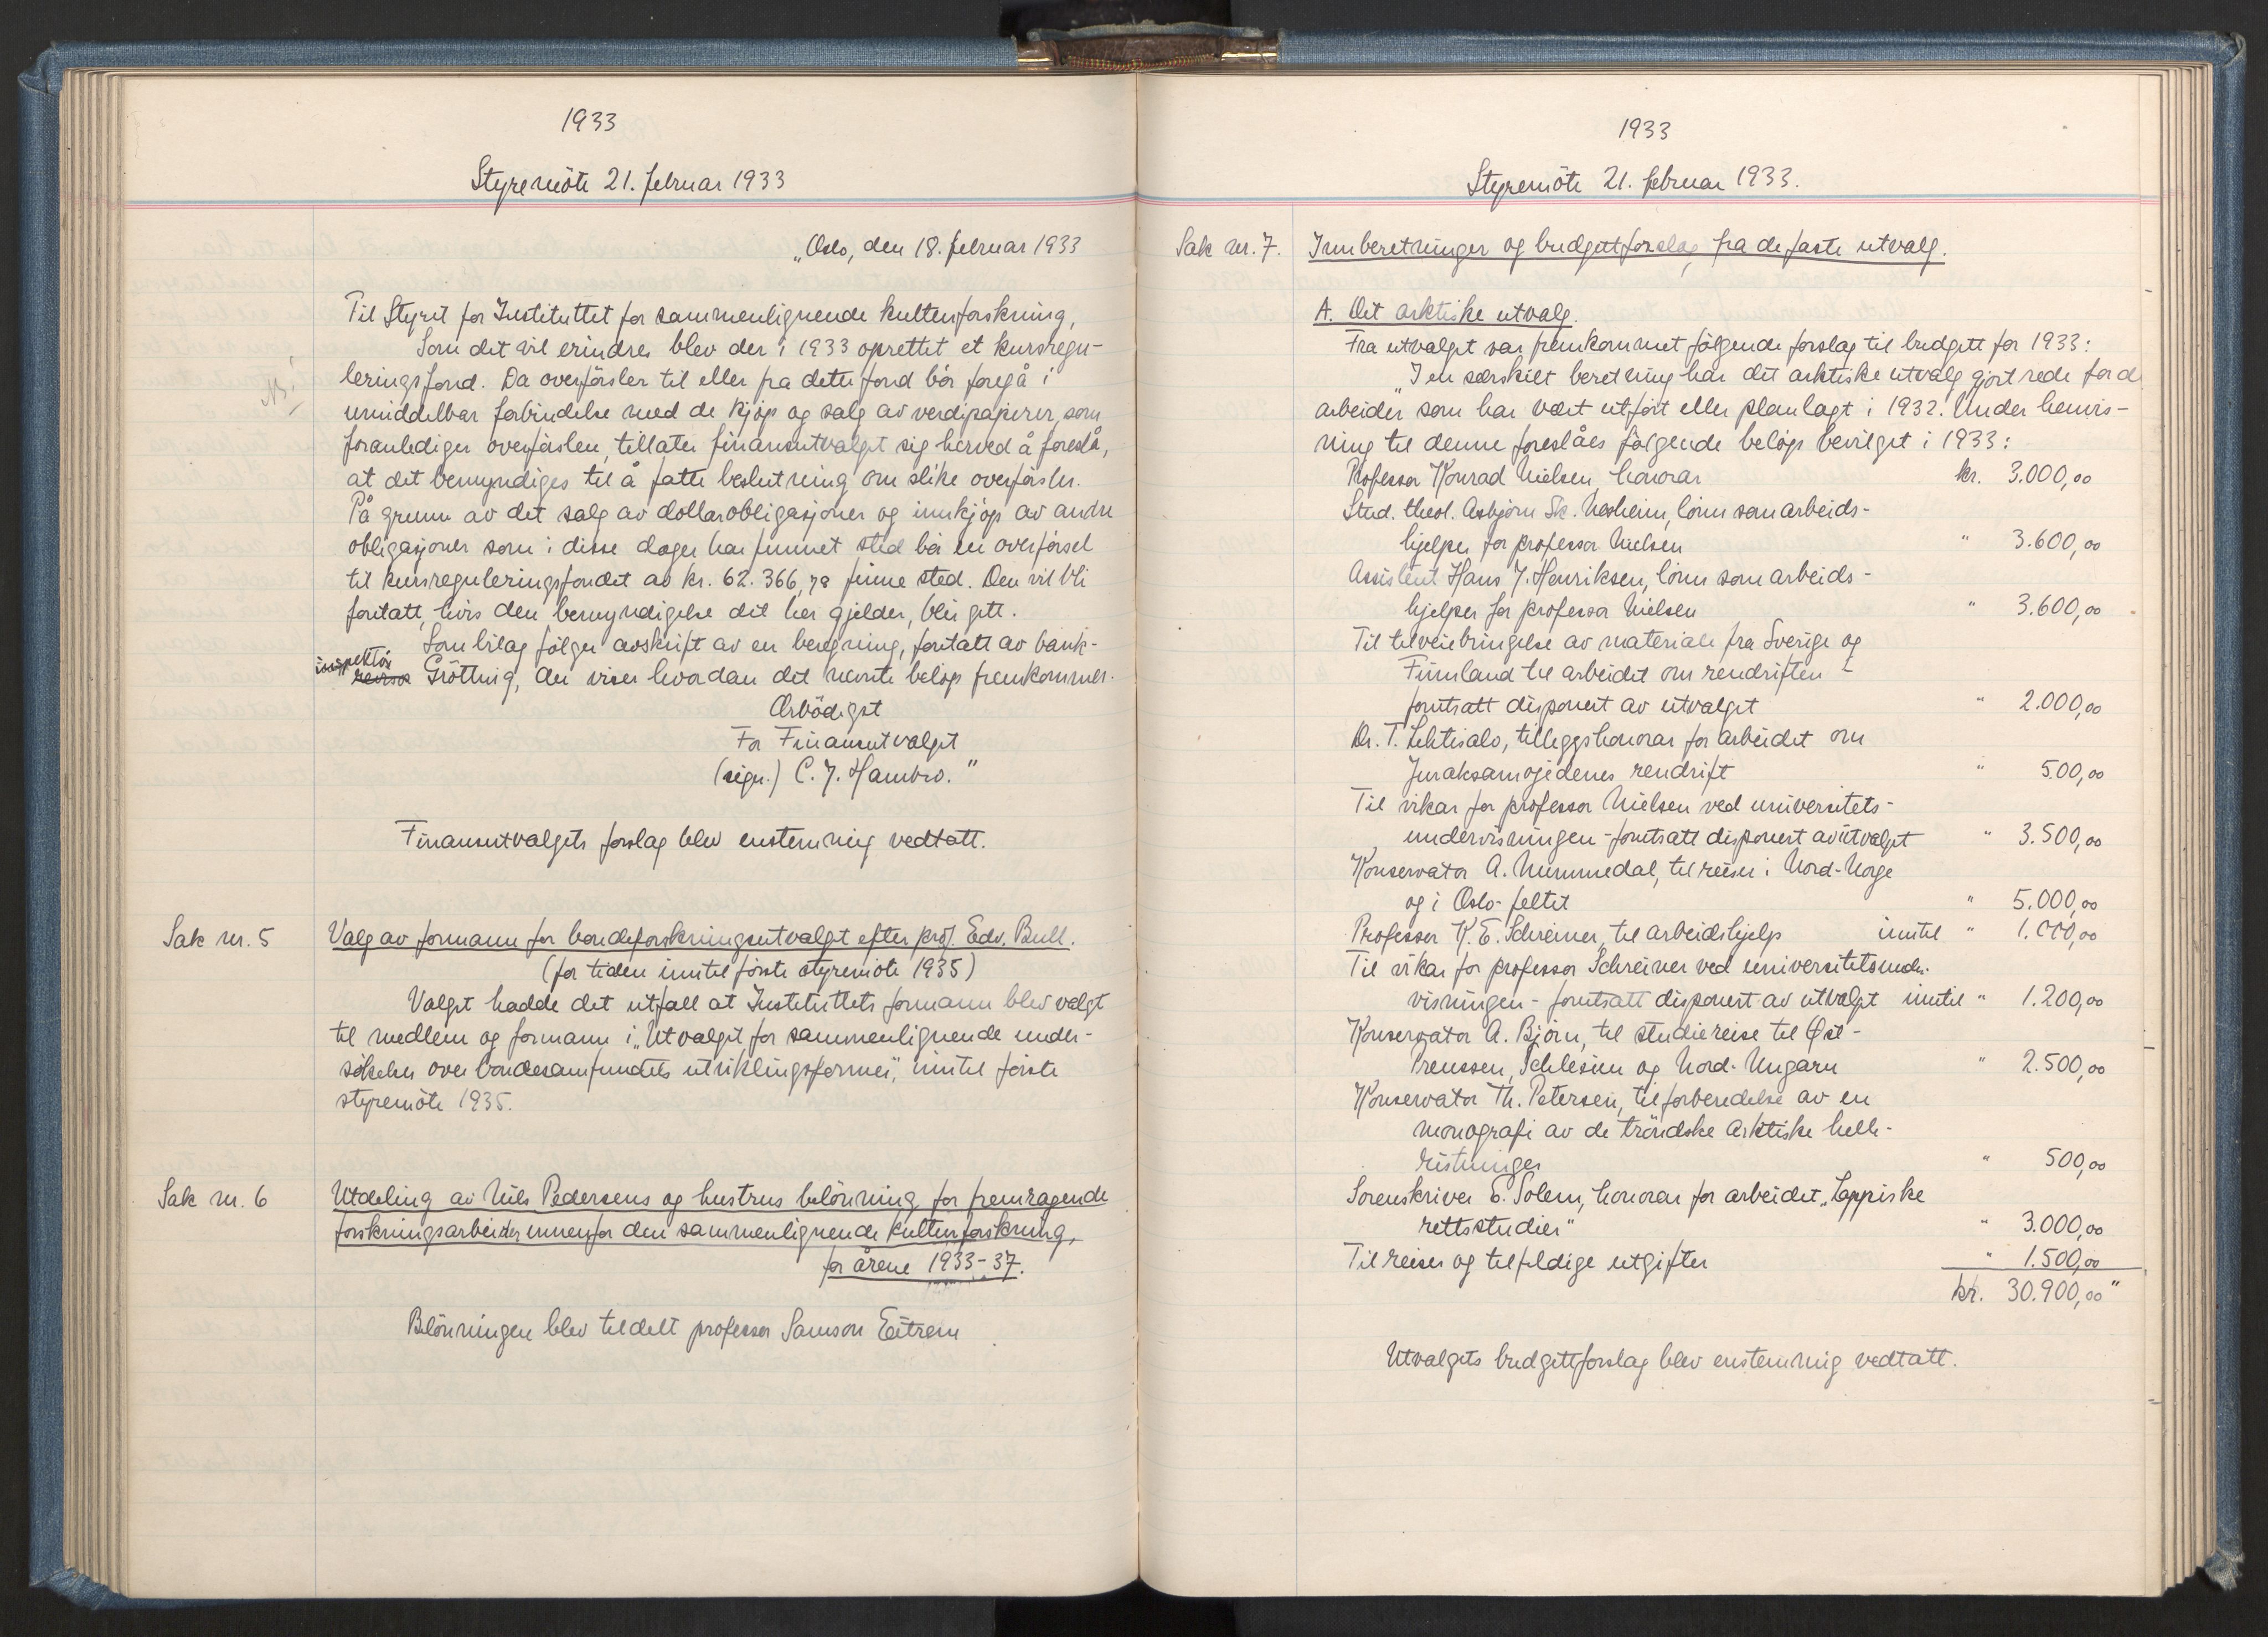 1933
Styremöte 21. februar 1933
„Oslo, den 18. februar 1933
Til Styret for Instituttet for sammenlignende kulturforskning,
Som det vil erindres blev der i 1933 oprettet et kursregu-
leringsfond. Da overförsler til eller fra dette fond bör foregå i
umiddelbar forbindelse med de kjöp og salg av verdipapirer, som
foranlediger overförslen, tillater finansutvalget sig herved å foreslå,
at det bemyndiges til å fatte beslutning om slike overförsler.
På grunn av det salg av dollarobligasjoner og innkjöp av andre
obligasjoner som i disse dager har funnet sted bör en overförsel
til kursreguleringsfondet av kr. 62.366,78 finne sted. Den vil bli
foretatt, hvis den bemyndigelse det her gjelder, blir gitt.
Som bilag fölger avskrift av en beregning, foretatt av bank-
inspektör revisor Grötting, der viser hvordan det nevnte belöp fremkommer.
Ærbödigst
For Finansutvalget
(sign.) C. J. Hambro."
Finansutvalgets forslag blev enstemmig vedtatt.
Sak nr. 5
Valg av formann for bondeforskningsutvalget efter prof. Edv. Bull.
(for tiden inntil förste styremöte 1935)
Valget hadde det utfall at Instituttets formann blev valgt
til medlem og formann i „Utvalget for sammenlignende under-
sökelser over bondesamfundets utviklingsformer", inntil förste
styremöte 1935.
Sak nr. 6
Utdeling av Nils Pedersens og hustrus belönning for fremragende
forskningsarbeider innenfor den sammenlignende kulturforskning,
for årene 1933-37.
Belönningen blev tildelt professor Samson Eitrem
1933
Styremöte 21. februar 1933.
Sak nr. 7. Innberetninger og budgettforslag fra de faste utvalg.
A. Det arktiske utvalg.
Fra utvalget var fremkommet fölgende forslag til budgett for 1933:
„I en særskilt beretning har det arktiske utvalg gjort rede for d
arbeider som har vært utfört eller planlagt i 1932. Under henvis-
ning til denne foreslåes fölgende belöp bevilget i 1933:
Professor Konrad Nielsen, honorar kr. 3.000,00
Stud. theol. Asbjörn Sk. Nesheim, lönn som arbeids-
hjelper for professor Nielsen " 3.600,00
Assistent Hans J. Henriksen, lönn som arbeids-
hjelper for professor Nielsen " 3.600,00
Til tilveiebringelse av materiale fra Sverige og
Finnland til arbeidet om rendriften -
forutsatt disponert av utvalget " 2.000,00
Dr. T. Lehtisalo, tilleggshonorar for arbeidet om
Juraksamojedenes rendrift " 500,00
Til vikar for professor Nielsen ved universitets-
undervisningen - forutsatt disponert av utvalget " 3.500,00
Konservator A. Nummedal, til reiser i Nord-Norge
og i Oslo-feltet " 5.000,00
Professor K. E. Schreiner, til arbeidshjelp inntil " 1.000,00
Til vikar for professor Schreiner ved universitetsunder-
visningen - forutsatt disponert av utvalget inntil " 1.200,00
Konservator A. Björn, til studiereise til Øst-
Preussen, Schlesien og Nord-Ungarn " 2.500,00
Konservator Th. Petersen, til forberedelse av en
monografi av de tröndske arktiske helle-
ristninger " 500,00
Sorenskriver E. Solem, honorar for arbeidet „Lappiske
rettsstudier" " 3.000,00
Til reiser og tilfeldige utgifter " 1.500,00
kr. 30.900,00"
Utvalgets budgettforslag blev enstemmig vedtatt.